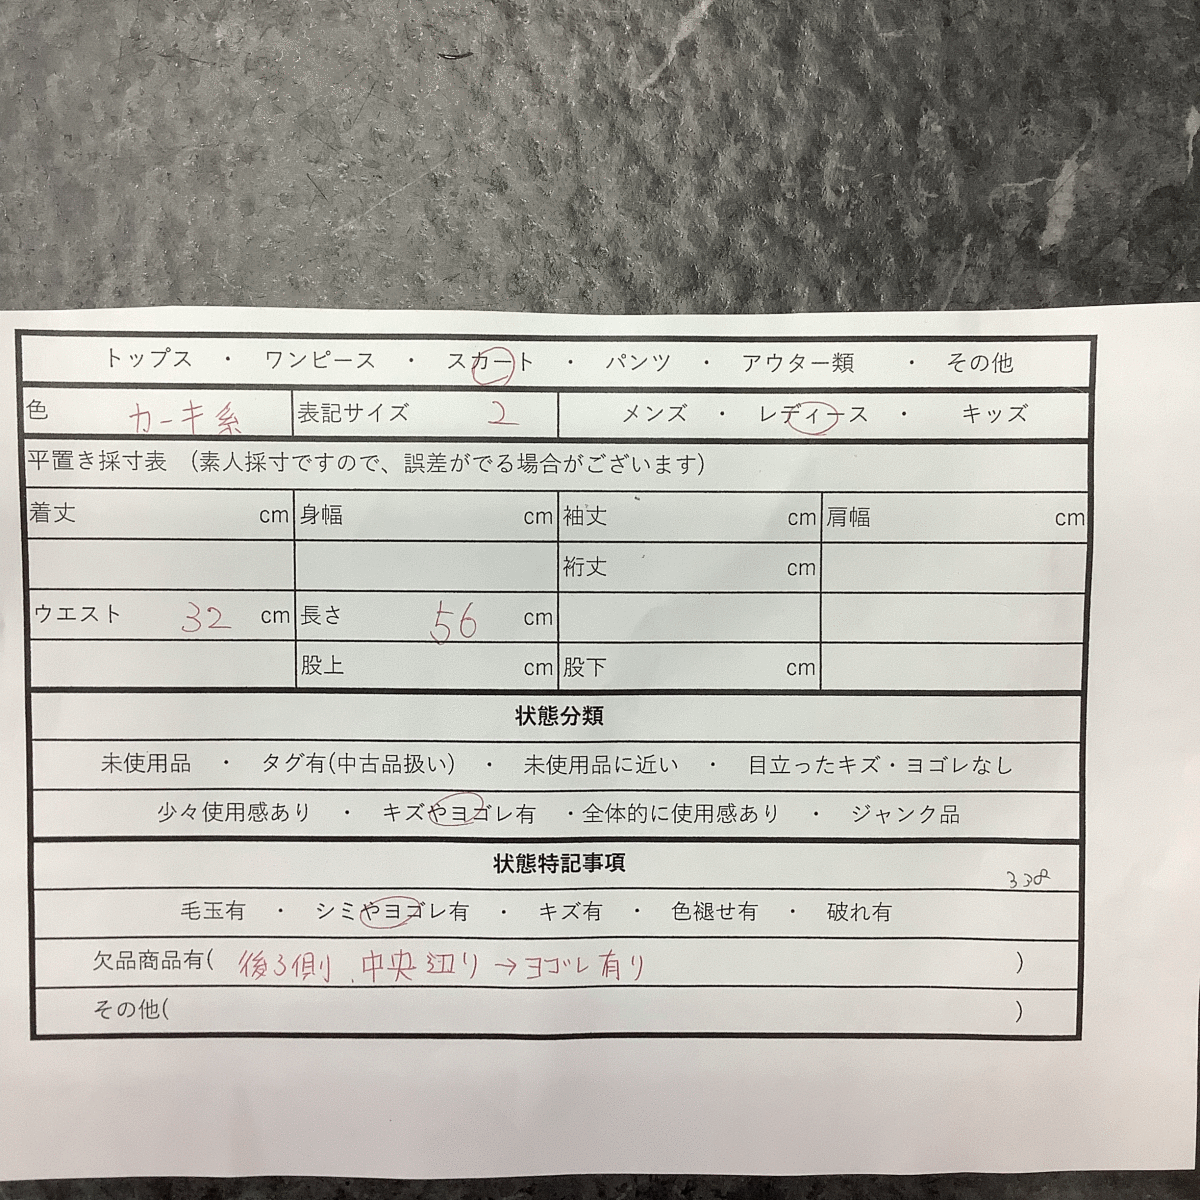 トップス ・ ワンピース ・ スカート ・ パンツ ・ アウター類 ・ その他
色 カーキ系 表記サイズ 2 メンズ ・ レディース ・ キッズ
平置き採寸表 (素人採寸ですので、誤差がでる場合がございます)
着丈 cm 身幅 cm 袖丈 cm 肩幅 cm
裄丈 cm
ウエスト 32 cm 長さ 56 cm
股上 cm 股下 cm
状態分類
未使用品 ・ タグ有(中古品扱い) ・ 未使用品に近い ・ 目立ったキズ・ヨゴレなし
少々使用感あり ・ キズやヨゴレ有 ・全体的に使用感あり ・ ジャンク品
状態特記事項
338
毛玉有 ・ シミやヨゴレ有 ・ キズ有 ・ 色褪せ有 ・ 破れ有
欠品商品有( 後ろ側、中央辺り→ヨゴレ有り )
その他( )